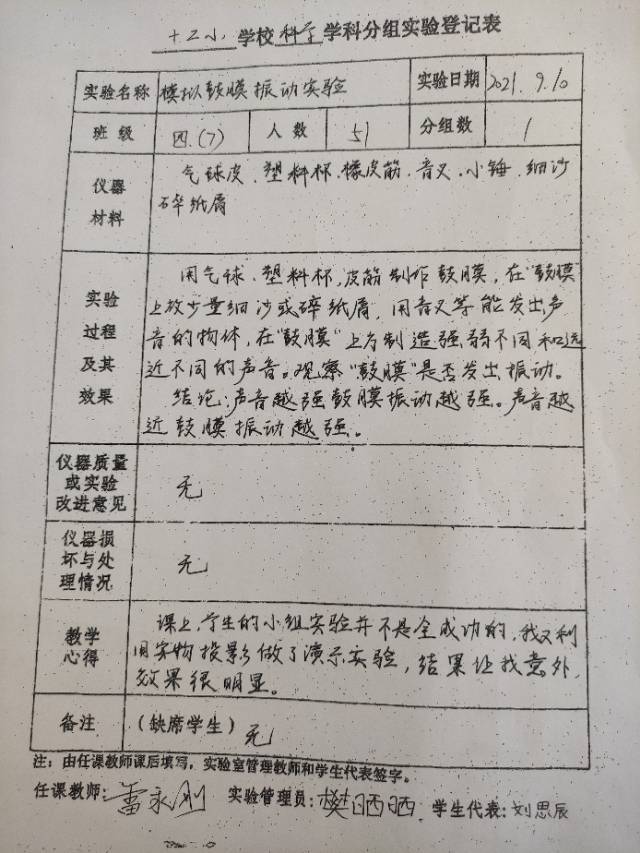 十二小学校科学学科分组实验登记表
实验名称 模拟鼓膜振动实验 实验日期 2021.9.10
班级 四.(7) 人数 51 分组数 1
仪器材料 气球皮、塑料杯、橡皮筋、音叉、小锤、细沙
碎纸屑
实验过程及其效果 用气球、塑料杯,皮筋制作鼓膜,在“鼓膜”
上放少量细沙或碎纸屑,用音叉等能发出声
音的物体,在“鼓膜”上方制造强弱不同和远
近不同的声音。观察“鼓膜”是否发出振动。
结论:声音越强鼓膜振动越强。声音越
近鼓膜振动越强。
仪器质量或实验改进意见 无
仪器损坏与处理情况 无
教学心得 课上,学生的小组实验并不是全成功的,我又利
用实物投影做了演示实验,结果让我意外,
效果很明显。
备注 (缺席学生) 无
注:由任课教师课后填写,实验室管理教师和学生代表签字。
任课教师:雷永刚 实验管理员:樊晒晒 学生代表:刘思辰